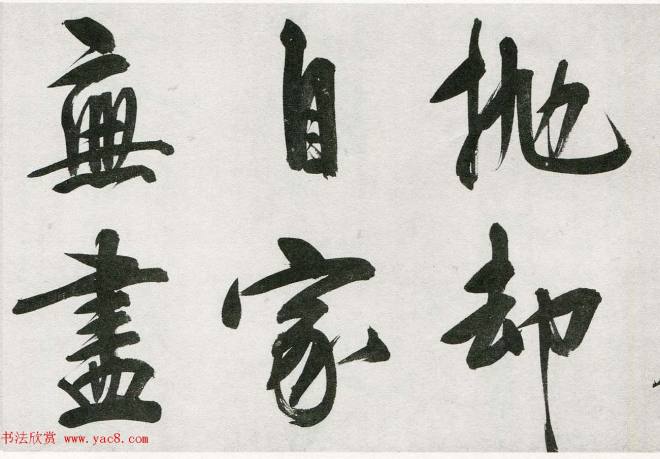 抛却
自家
無盡
书法欣赏 www.yac8.com